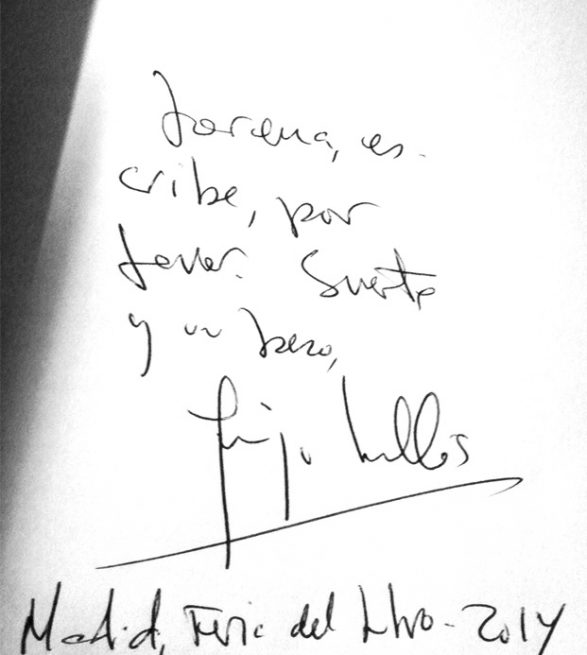 Lorena, es-
cribe, por
favor. Suerte
y un beso,
Madrid, Feria del Libro - 2014